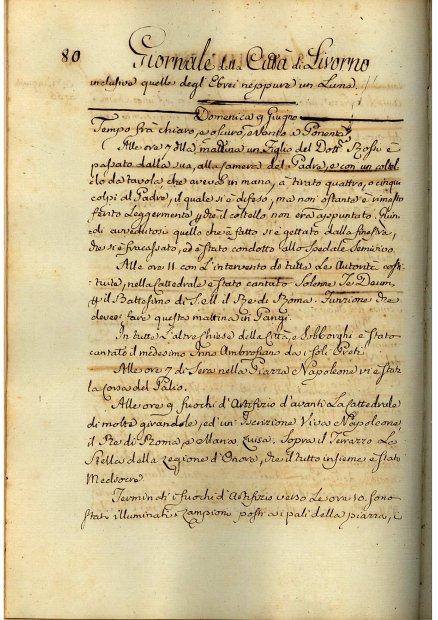 80
Giornale della Città di Livorno
inclusive quelle degl'Ebrei neppure un Luna.
Domenica 9 Giugno
Tempo frà chiaro, e oscuro, e Vento a Ponente
Alle ore 7 della mattina un Figlio del Dott. Rossi è
passato dalla sua, alla Camera del Padre, e con un coltel
lo da tavola che aveva in mano, à tirato quattro, o cinque
colpi al Padre, il quale si è difeso, ma non ostante è rimasto
ferito Leggermente, che il coltello non era appuntato. Quin
di avvedutosi quello che à fatto si è gettato dalla finestra,
che si è fracassato, ed è stato condotto allo Spedale Semivivo.
Alle ore 11 con L'intervento di tutte Le Autorità costi
tuite, nella Cattedrale è Stato cantato Solenne Te Deum,
il Battesimo di S.E. il Re di Roma. Funzione che
devesi fare questa mattina in Parigi.
In tutte L'altre Chiese della Città, e Sobborghi è Stato
cantato il medesimo Inno Ambrosiano da i soli Preti.
Alle ore 7 di Sera nella Piazza Napoleone vi è Stata
la Corsa del Palio.
Alle ore 9 fuochi d'Artifizio d'avanti La Cattedrale
di molte girandole, ed un Iscrizione Viva Napoleone,
il Re di Roma, e Maria Luisa. Sopra il Terrazzo La
Stella della Legione d'Onore, che il tutto insieme è Stato
Mediocre.
Terminati i fuochi d'Artifizio verso Le ore 10. sono
Stati illuminati i Lampioni posti a i pali della piazza, e